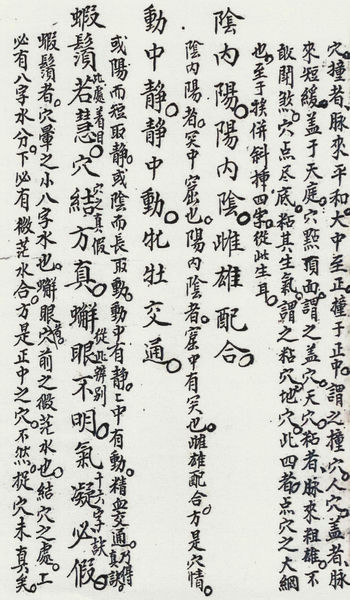 穴。撞者。脉來平和。大中至正。撞于正中。謂之撞穴。人穴。盖者。脉
來短緩。盖于天庭。穴點頂面。謂之盖穴。天穴。粘者。脉來粗雄。不
敢闘煞。穴点尽底。粘其生氣。謂之粘穴。地穴。此四者。点穴之大綱
也。至于挨併斜揷四字。從此生耳。
陰内陽。陽内陰。雌雄配合。
陰内陽者。突中窟也。陽内陰者。窟中有突也。雌雄配合。方是穴情。
動中静。静中動。牝牡交通。
或陽而短取静。或陰而長取動。動中有静。〻中有動。精血交通。乃得真訣
蝦鬚若慧。穴結方真。蠏眼不明。氣凝必假。
此處着眼
穴之真假
從此辨别
十六字訣
蝦鬚者。穴暈之小八字水也。蠏眼者。穴前之微茫水也。結穴之處。上
必有八字水分。下必有微茫水合。方是正中之穴。不然。穴未真矣。